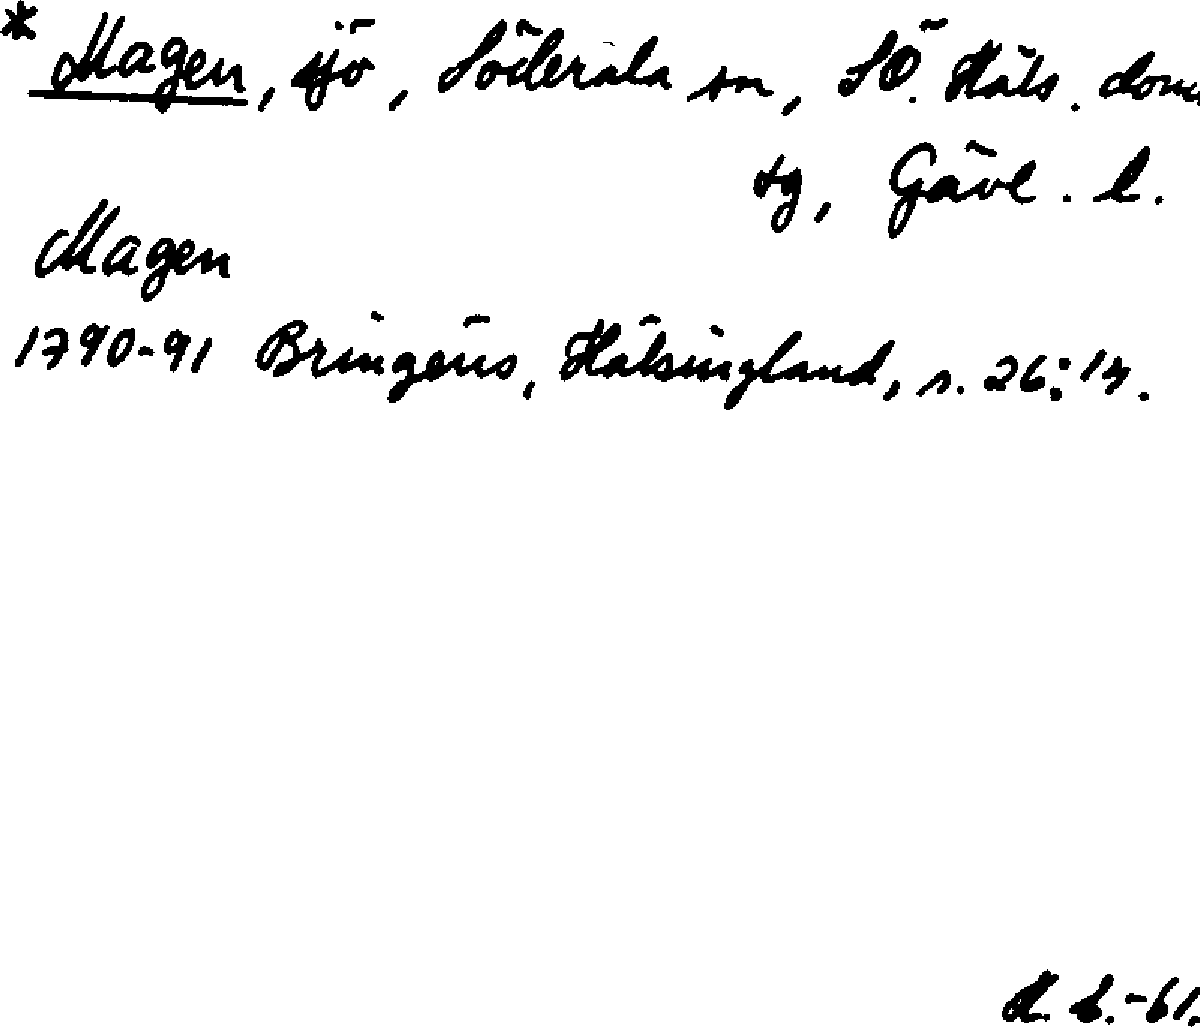 * Magen, sjö, Söderala sn, SÖ. Häls. doms
sg, Gävl. l.
Magen
1790-91 Bringéus, Hälsingland, s. 26:
-61.